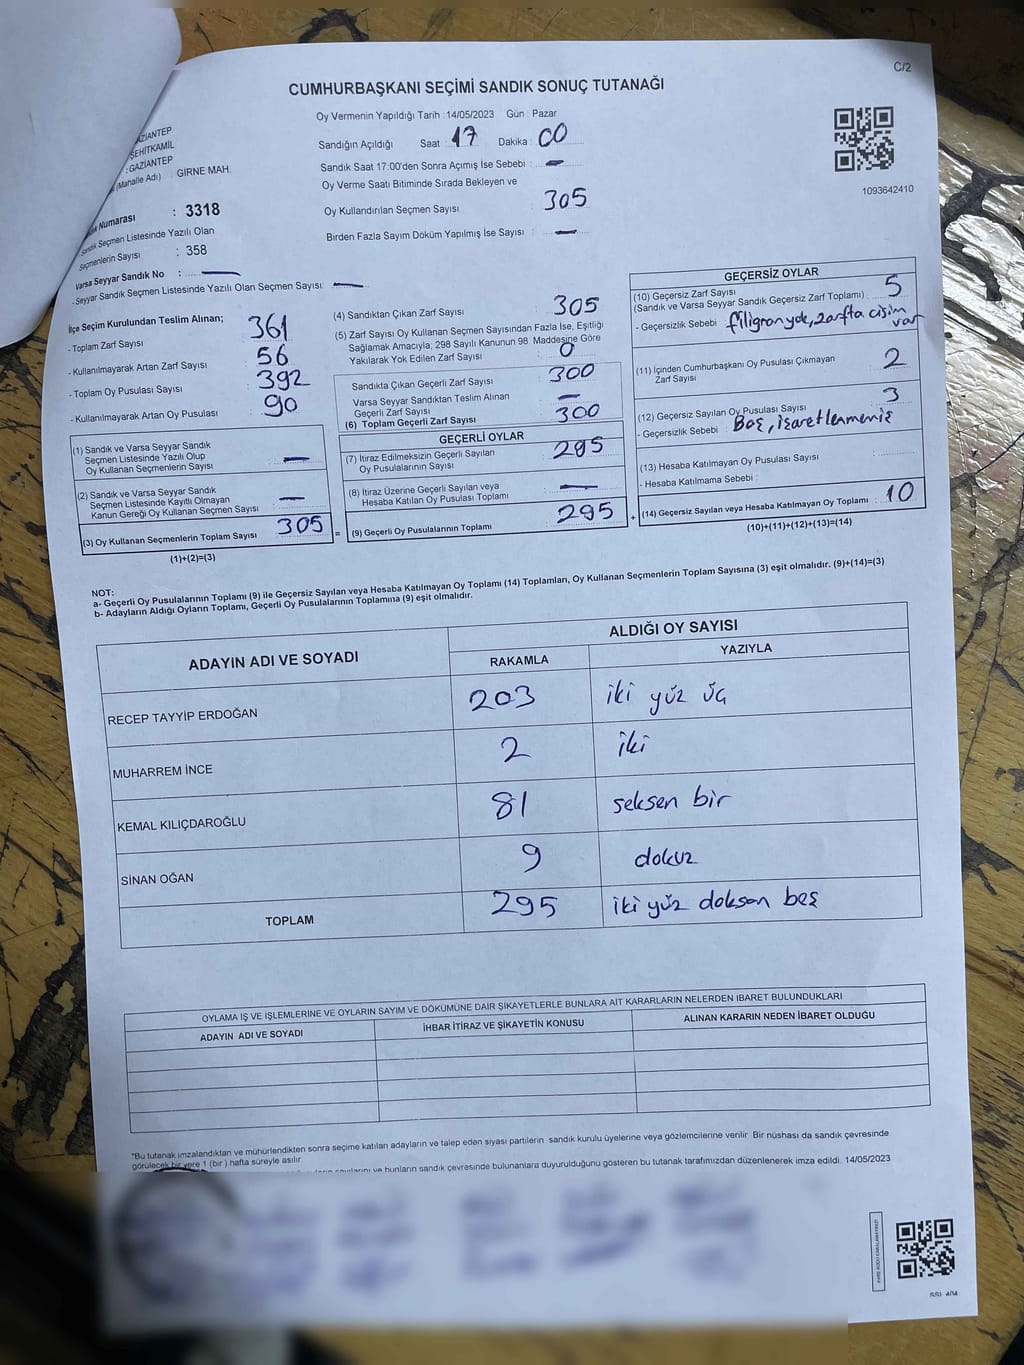 C/2
CUMHURBAŞKANI SEÇİMİ SANDIK SONUÇ TUTANAĞI
Oy Vermenin Yapıldığı Tarih : 14/05/2023 Gün : Pazar
Sandığın Açıldığı Saat 17 Dakika : 00
Sandık Saat 17:00'den Sonra Açımış İse Sebebi : —
Oy Verme Saati Bitiminde Sırada Bekleyen ve
Oy Kullandırılan Seçmen Sayısı : 305
Birden Fazla Sayım Döküm Yapılmış İse Sayısı : —
1093642410
GAZİANTEP
ŞEHİTKAMİL
: GAZİANTEP
(Mahalle Adı) GİRNE MAH.
Numarası : 3318
Sandık Seçmen Listesinde Yazılı Olan
Seçmenlerin Sayısı : 358
Varsa Seyyar Sandık No : —
- Seyyar Sandık Seçmen Listesinde Yazılı Olan Seçmen Sayısı: —
İlçe Seçim Kurulundan Teslim Alınan;
- Toplam Zarf Sayısı 361
- Kullanılmayarak Artan Zarf Sayısı 56
- Toplam Oy Pusulası Sayısı 392
- Kullanılmayarak Artan Oy Pusulası 90
(1) Sandık ve Varsa Seyyar Sandık
Seçmen Listesinde Yazılı Olup
Oy Kullanan Seçmenlerin Sayısı —
(2) Sandık ve Varsa Seyyar Sandık
Seçmen Listesinde Kayıtlı Olmayan
Kanun Gereği Oy Kullanan Seçmen Sayısı —
(3) Oy Kullanan Seçmenlerin Toplam Sayısı 305
(1)+(2)=(3)
(4) Sandıktan Çıkan Zarf Sayısı 305
(5) Zarf Sayısı Oy Kullanan Seçmen Sayısından Fazla İse, Eşitliği
Sağlamak Amacıyla; 298 Sayılı Kanunun 98. Maddesine Göre
Yakılarak Yok Edilen Zarf Sayısı : 0
Sandıkta Çıkan Geçerli Zarf Sayısı 300
Varsa Seyyar Sandıktan Teslim Alınan
Geçerli Zarf Sayısı —
(6) Toplam Geçerli Zarf Sayısı : 300
GEÇERLİ OYLAR
(7) İtiraz Edilmeksizin Geçerli Sayılan
Oy Pusulalarının Sayısı 295
(8) İtiraz Üzerine Geçerli Sayılan veya
Hesaba Katılan Oy Pusulası Toplamı —
= (9) Gecerli Oy Pusulalarının Toplamı 295 +
GEÇERSİZ OYLAR
(10) Geçersiz Zarf Sayısı
(Sandık ve Varsa Seyyar Sandık Geçersiz Zarf Toplamı) 5
- Geçersizlik Sebebi : filigran yok, zarfta cisim
var
(11) İçinden Cumhurbaşkanı Oy Pusulası Çıkmayan
Zarf Sayısı 2
(12) Geçersiz Sayılan Oy Pusulası Sayısı 3
- Geçersizlik Sebebi : Boş, işaretlenmemiş
(13) Hesaba Katılmayan Oy Pusulası Sayısı :
- Hesaba Katılmama Sebebi :
(14) Geçersiz Sayılan veya Hesaba Katılmayan Oy Toplamı : 10
(10)+(11)+(12)+(13)=(14)
NOT:
a- Geçerli Oy Pusulalarının Toplamı (9) ile Geçersiz Sayılan veya Hesaba Katılmayan Oy Toplamı (14) Toplamları, Oy Kullanan Seçmenlerin Toplam Sayısına (3) eşit olmalıdır. (9)+(14)=(3)
b- Adayların Aldığı Oyların Toplamı, Geçerli Oy Pusulalarının Toplamına (9) eşit olmalıdır.
ADAYIN ADI VE SOYADI ALDIĞI OY SAYISI
RAKAMLA YAZIYLA
RECEP TAYYİP ERDOĞAN 203 iki yüz üç
MUHARREM İNCE 2 iki
KEMAL KILIÇDAROĞLU 81 seksen bir
SİNAN OĞAN 9 dokuz
TOPLAM 295 iki yüz doksan beş
OYLAMA İŞ VE İŞLEMLERİNE VE OYLARIN SAYIM VE DÖKÜMÜNE DAİR ŞİKAYETLERLE BUNLARA AİT KARARLARIN NELERDEN İBARET BULUNDUKLARI
ADAYIN ADI VE SOYADI İHBAR İTİRAZ VE ŞİKAYETİN KONUSU ALINAN KARARIN NEDEN İBARET OLDUĞU
*Bu tutanak imzalandıktan ve mühürlendikten sonra seçime katılan adayların ve talep eden siyasi partilerin sandık kurulu üyelerine veya gözlemcilerine verilir. Bir nüshası da sandık çevresinde
görülecek bir yere 1 (bir) hafta süreyle asılır.
ve bunların sandık çevresinde bulunanlara duyurulduğunu gösteren bu tutanak tarafımızdan düzenlenerek imza edildi. 14/05/2023